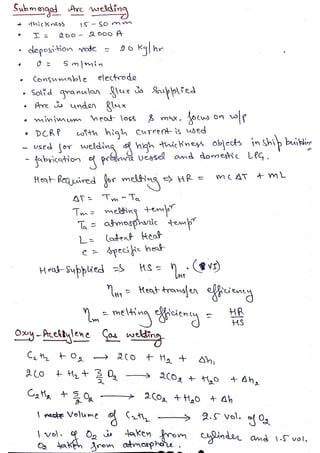 Submerged Arc welding
• thickness 15-50 mm
• I = 200 - 2000 A
• deposition rate = 20 Kg/hr
• v = 5 m/min
• Consumable electrode
• Solid granular flux is supplied
• Arc is under flux
• minimum heat loss & max. focus on w/p
• DCRP with high current is used
- used for welding of high thickness objects in ship building
- fabrication of pressure vessel and domestic LPG.
Heat Required for melting ⇒ HR = mcΔT + mL
ΔT = Tm - Ta
Tm = melting tempr
Ta = atmospheric tempr
L = latent Heat
c = specific heat
Heat Supplied ⇒ HS = ηHt . (VI)
ηHt = Heat transfer efficiency
ηm = melting efficiency = HR/HS
Oxy-Acetylene Gas welding
C2H2 + O2 → 2CO + H2 + Δh1
2CO + H2 + 3/2 O2 → 2CO2 + H2O + Δh2
C2H2 + 5/2 O2 → 2CO2 + H2O + Δh
1 volume of C2H2 → 2.5 vol. of O2
1 vol. of O2 is taken from cylinder and 1.5 vol.
O2 taken from atmosphere.